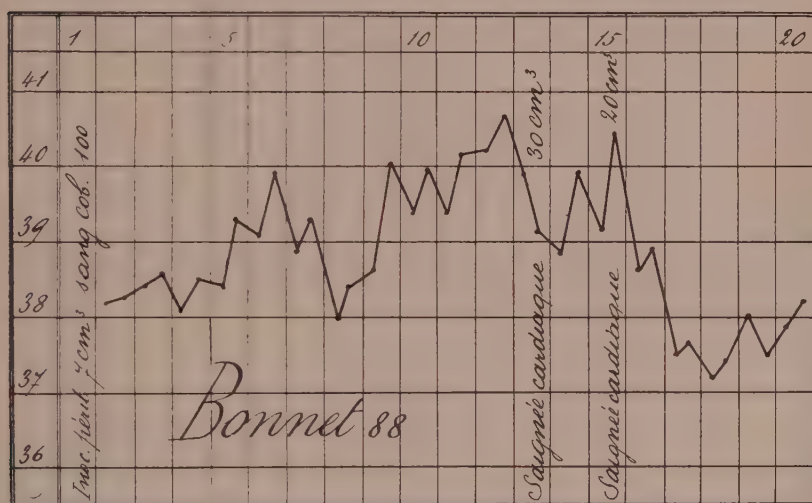 1 5 10 15 20
41
40
39
38
37
36
Inoc. périt. 7 cm³ sang cob. 100
Saignée cardiaque 30 cm³
Saignée cardiaque 20 cm³
Bonnet 88